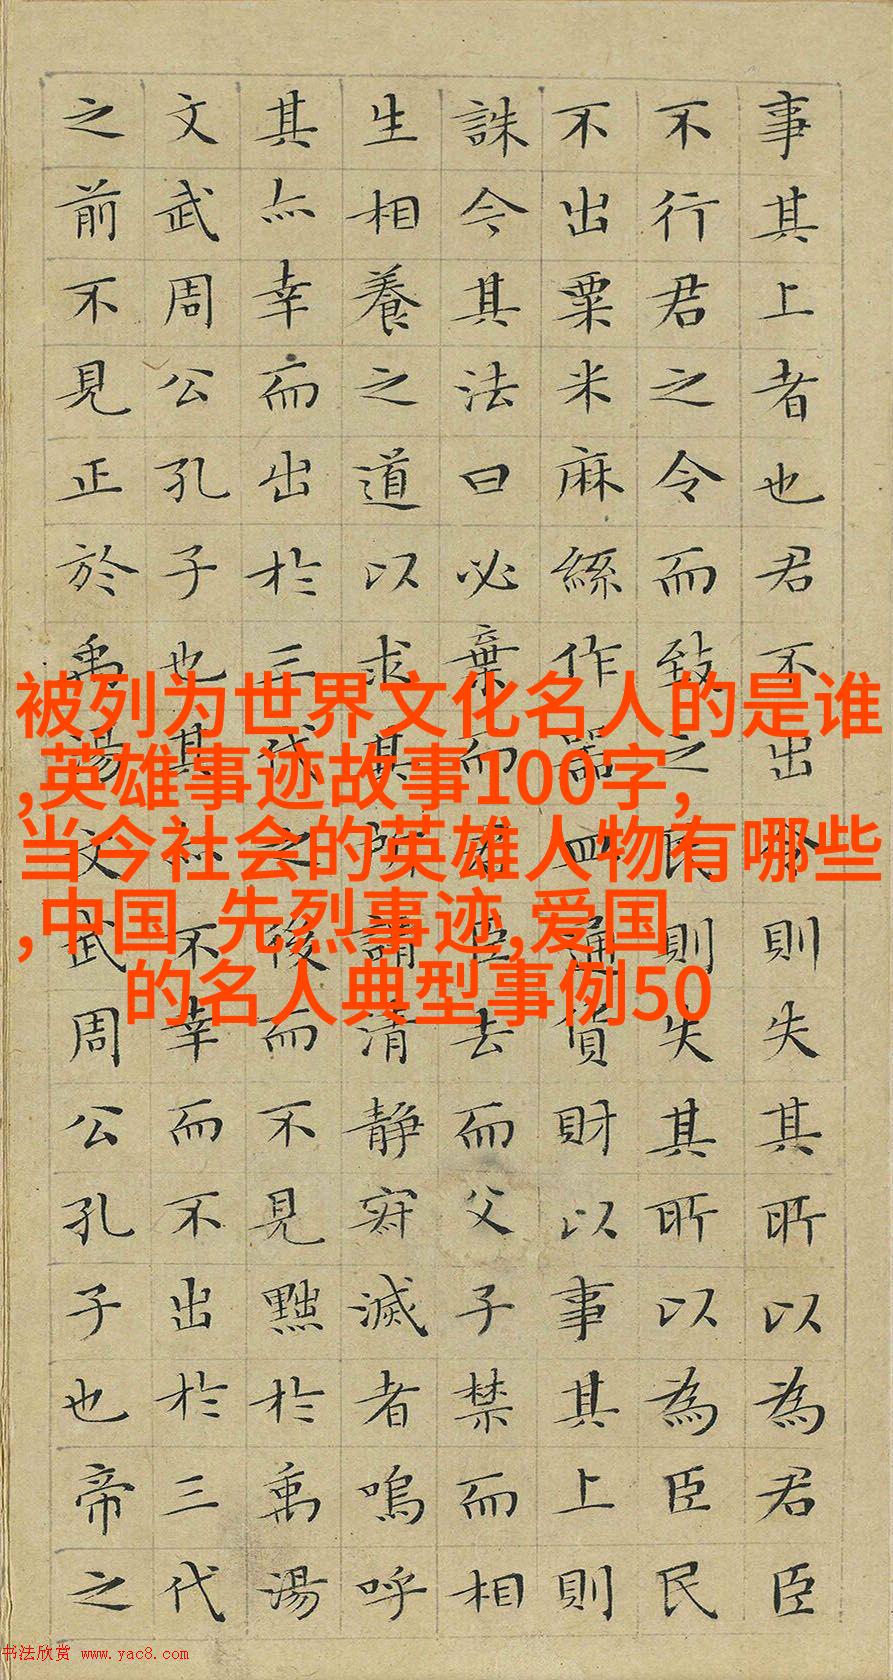 事其上者也君不出令則失其所以為君臣
不行君之令而致之民則失其所以為臣民
不出粟米麻絲作器皿通貨財以事其上則
誅今其法曰必棄而君臣去而父子禁而相
生相養之道以求其所謂清静寂滅者嗚呼
其亦幸而出於三代之後而不見黜於禹湯
文武周公孔子也其亦不幸而不出於三代
之前不見正於禹湯文武周公孔子也帝之
被列为世界文化名人的是谁
,英雄事迹故事100字,
当今社会的英雄人物有哪些
,中国 先烈事迹,爱国
的名人典型事例50
书法欣赏 www.yac8.com